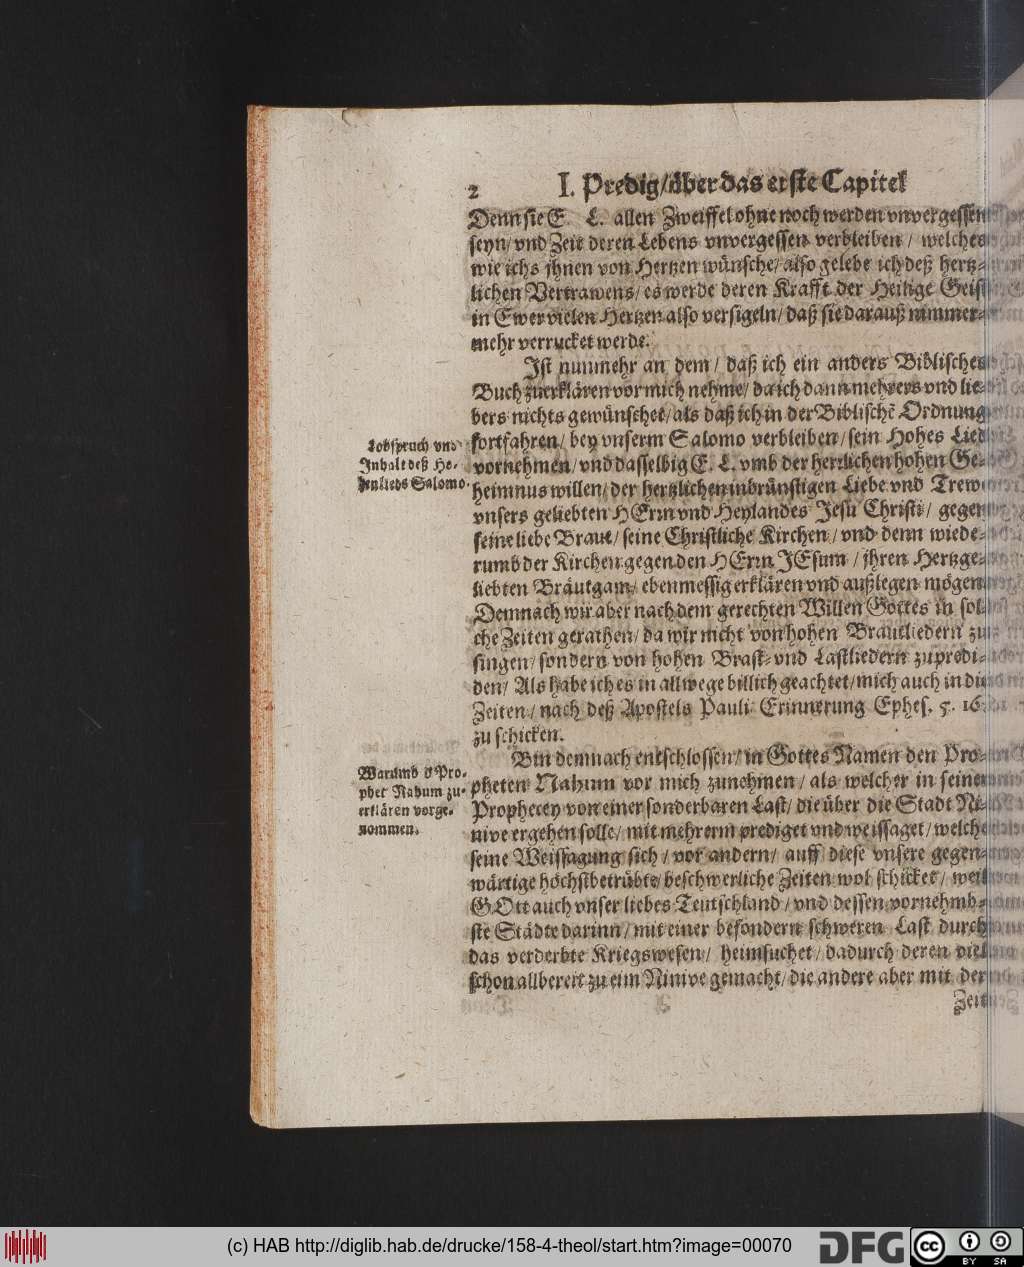 2 I. Predig/über das erste Capitel
Denn sie E. L. allen Zweiffel ohne noch werden vnvergessen
seyn/ vnd Zeit deren Lebens vnvergessen verbleiben / welches
wie ichs jhnen von Hertzen wünsche/ also gelebe ich deß hertz-
lichen Vertrawens/ es werde deren Krafft der Heilige Geist
in Ewer vielen Hertzen also versigeln/ daß sie darauß nimmer-
mehr verrucket werde.
Ist nunmehr an dem/ daß ich ein anders Biblisches
Buch zuerklären vor mich nehme/ da ich dann mehrers vnd lie-
bers nichts gewünschet/ als daß ich in der Biblischē Ordnung
fortfahren/ bey vnserm Salomo verbleiben/ sein Hohes Lied
vornehmen/ vnd dasselbig E. L. vmb der herrlichen hohen Ge-
heimnus willen/ der hertzlichen inbrünstigen Liebe vnd Trew
vnsers geliebten HErrn vnd Heylandes Jesu Christi/ gegen
seine liebe Braut/ seine Christliche Kirchen/ vnd denn wiede-
rumb der Kirchen gegen den HErrn JEsum / jhren Hertzge-
liebten Bräutgam/ ebenmessig erklären vnd außlegen mögen
Demnach wir aber nach dem gerechten Willen Gottes in sol-
che Zeiten gerathen/ da wir nicht von hohen Brautliedern zu
singen/ sondern von hohen Brast- vnd Lastliedern zu predi-
den/ Als habe ich es in allwege billich geachtet/ mich auch in die
Zeiten/ nach deß Apostels Pauli Erinnerung Ephes. 5. 16.
zu schicken.
Bin demnach entschlossen/ in Gottes Namen den Pro-
pheten Nahum vor mich zunehmen/ als welcher in seiner
Prophecey von einer sonderbaren Last/ die über die Stadt Ni-
nive ergehen solle/ mit mehrerm prediget vnd weissaget/ welche
seine Weissagung sich / vor andern/ auff diese vnsere gegen-
wärtige höchstbetrübte/ beschwerliche Zeiten wol schicket/ weil
GOtt auch vnser liebes Teutschland / vnd dessen vornehmb-
ste Städte darinn/ mit einer besondern schweren Last durch
das verderbte Kriegswesen/ heimsuchet/ dadurch deren viel
schon allbereit zu eim Ninive gemacht/ die andere aber mit der
Zeit
Lobspruch vnd
Inhalt deß Ho-
henlieds Salomo.
Warumb d Pro-
phet Nahum zu-
erklären vorge-
nommen.
(c) HAB http://diglib.hab.de/drucke/158-4-theol/start.htm?image=00070
DFG
cc BY SA